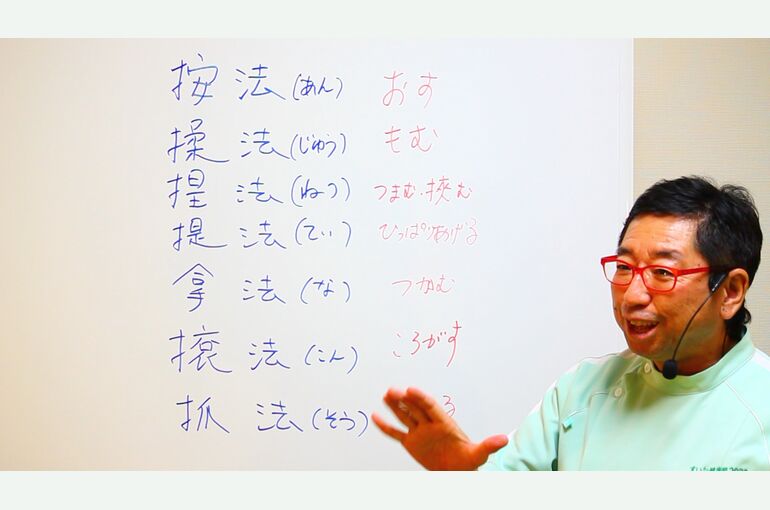 按法(あん) おす
揉法(じゅう) もむ
捏法(ねつ) つまむ・挟む
提法(てい) ひっぱりあげる
拿法(な) つかむ
滾法(こん) ころがす
抓法(そう) る